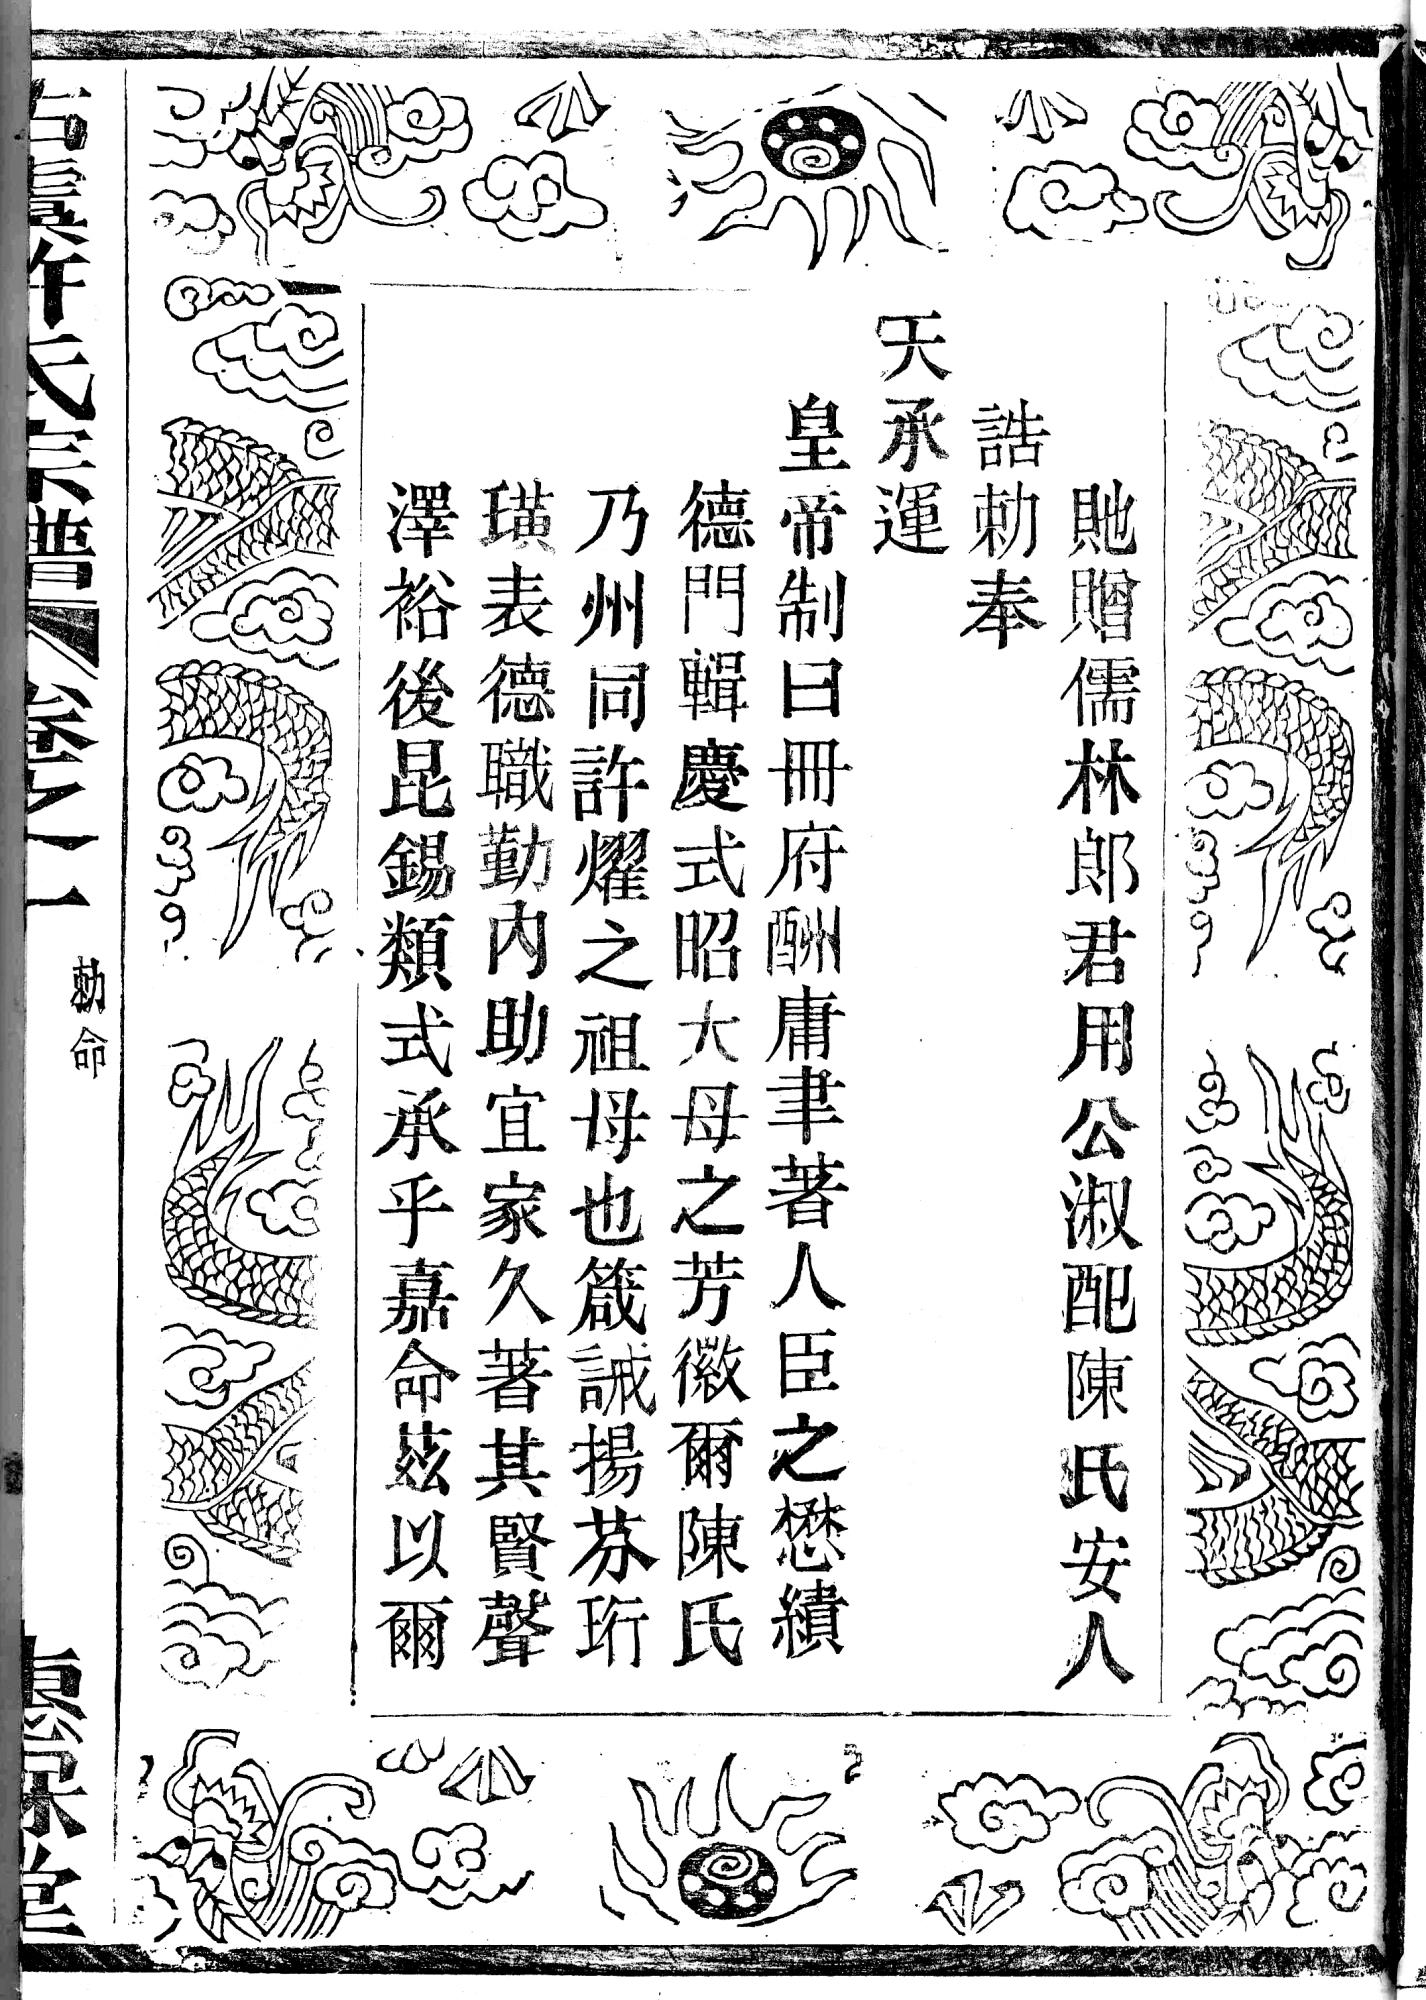 貤贈儒林郎君用公淑配陳氏安人
誥勅奉
天承運
皇帝制曰冊府酬庸聿著人臣之懋績
德門輯慶式昭大母之芳徽爾陳氏
乃州同許燿之祖母也箴誡揚芬珩
璜表德職勤內助宜家久著其賢聲
澤裕後昆錫類式承乎嘉命茲以爾
古虞許氏宗譜 卷之一
勅命
惠保堂